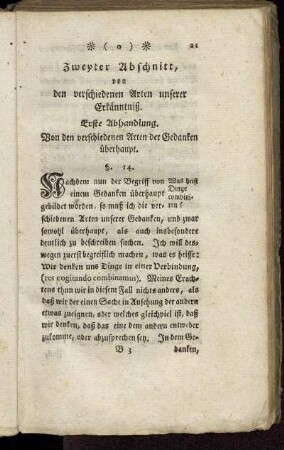 * ( o ) * 21
Zweyter Abschnitt,
von
den verschiedenen Arten unserer
Erkänntniß.
Erste Abhandlung.
Von den verschiedenen Arten der Gedanken
überhaupt.
§. 14.
Nachdem nun der Begriff von Was heist
einem Gedanken überhaupt Dinge
gebildet worden, so muß ich die ver- combini-
schiedenen Arten unserer Gedanken, und zwar ren?
sowohl überhaupt, als auch insbesondere
deutlich zu beschreiben suchen. Ich will des-
wegen zuerst begreiflich machen, was es heisse:
Wir denken uns Dinge in einer Verbindung,
(res cogitando combinamus). Meines Erach-
tens thun wir in diesem Fall nichts anders, als
daß wir der einen Sache in Ansehung der andern
etwas zueignen, oder welches gleichviel ist, daß
wir denken, daß das eine dem andern entweder
zukomme, oder abzusprechen sey. In dem Ge-
B 3 danken,